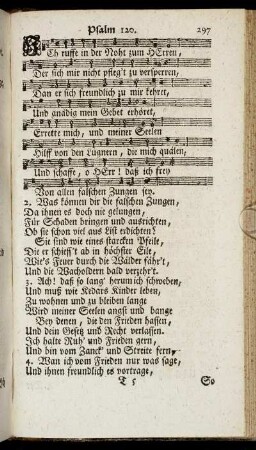 Psalm 120. 297
Ich ruffe in der Noht zum HErren,
Der sich mir nicht pfleg't zu versperren,
Dan er sich freundlich zu mir kehret,
Und gnädig mein Gebet erhöret,
Errette mich, und meiner Seelen
Hilff von den Lugnern, die mich quälen,
Und schaffe, o HErr! daß ich frey
Von allen falschen Zungen sey.
2. Was können dir die falschen Zungen,
Da ihnen es doch nie gelungen,
Für Schaden bringen und ausrichten,
Ob sie schon viel aus List erdichten!
Sie sind wie eines starcken Pfeile,
Die er schieß't ab in höchster Eile,
Wie's Feuer durch die Wälder fähr't,
Und die Wacholdern bald verzehr't.
3. Ach! daß so lang' herum ich schweben,
Und muß wie Kedars Kinder leben,
Zu wohnen und zu bleiben lange
Wird meiner Seelen angst und bange
Bey denen, die den Frieden hassen,
Und dein Gesetz und Recht verlassen.
Ich halte Ruh' und Frieden gern,
Und bin vom Zanck' und Streite fern,
4. Wan ich vom Frieden nur was sage,
Und ihnen freundlich es vortrage,
T 5 So